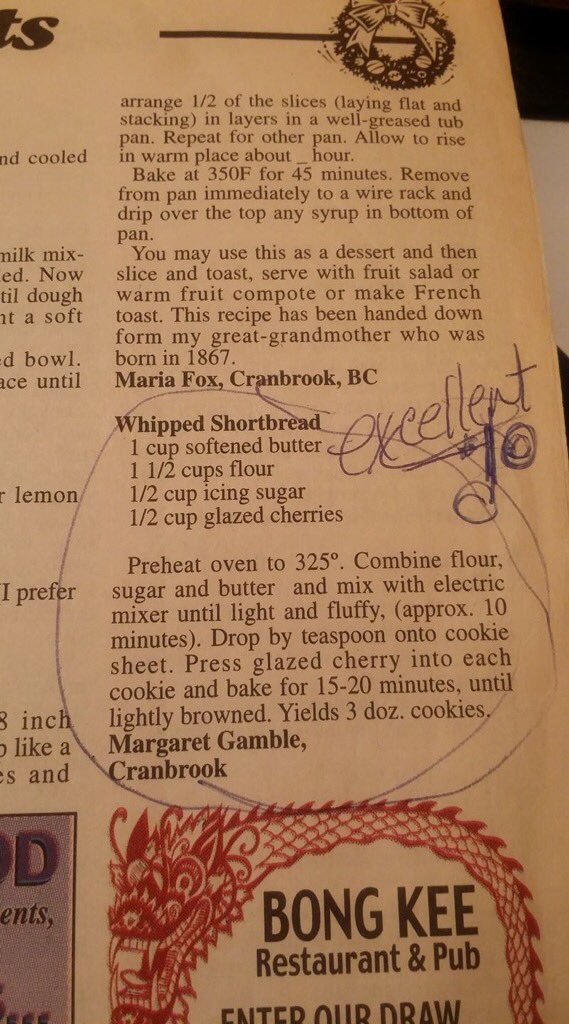 ts
nd cooled
milk mix-
ed. Now
til dough
nt a soft
ed bowl.
ace until
r lemon
I prefer
8 inch
p like a
es and
OD
ents,
arrange 1/2 of the slices (laying flat and
stacking) in layers in a well-greased tub
pan. Repeat for other pan. Allow to rise
in warm place about _ hour.
Bake at 350F for 45 minutes. Remove
from pan immediately to a wire rack and
drip over the top any syrup in bottom of
pan.
You may use this as a dessert and then
slice and toast, serve with fruit salad or
warm fruit compote or make French
toast. This recipe has been handed down
form my great-grandmother who was
born in 1867.
Maria Fox, Cranbrook, BC
excellent
Whipped Shortbread
1 cup softened butter
1 1/2 cups flour
1/2 cup icing sugar
1/2 cup glazed cherries
Preheat oven to 325º. Combine flour,
sugar and butter and mix with electric
mixer until light and fluffy, (approx. 10
minutes). Drop by teaspoon onto cookie
sheet. Press glazed cherry into each
cookie and bake for 15-20 minutes, until
lightly browned. Yields 3 doz. cookies.
Margaret Gamble,
Cranbrook
BONG KEE
Restaurant & Pub
ENTER OUR DRAW